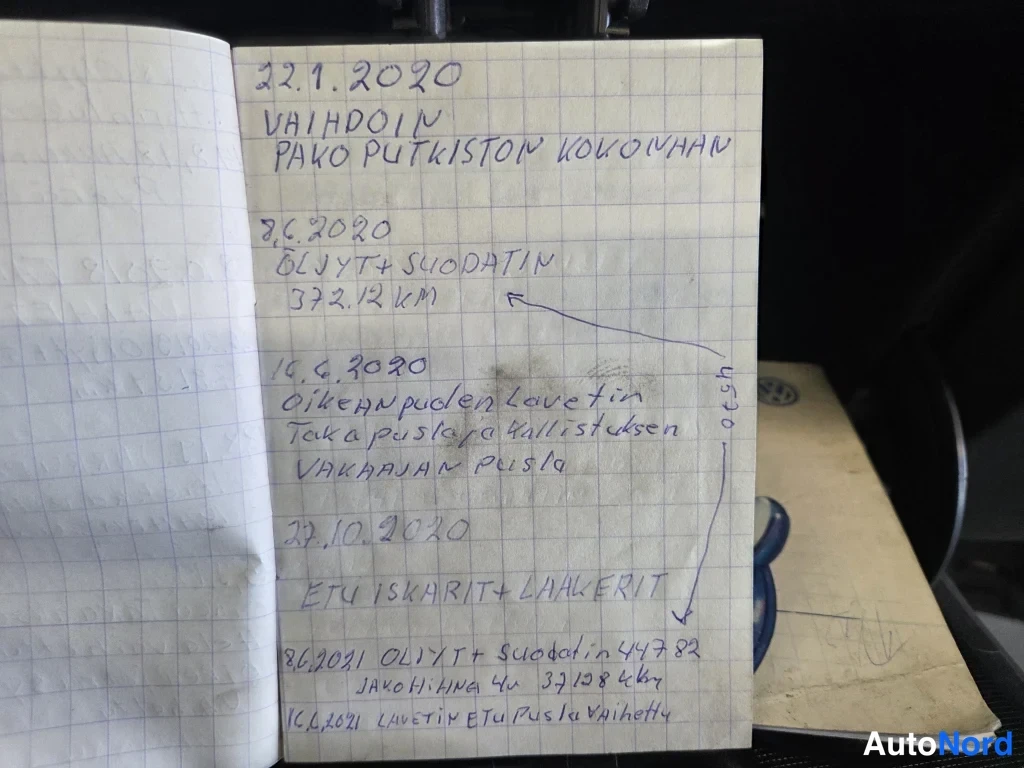 22.1.2020
VAIHDOIN
PAKO PUTKISTON KOKONAAN
8.6.2020
ÖLJYT + SUODATIN
372.12 KM
16.6.2020
OikEAN puden Lavetin
Taka pusla ja kallistuksen
VAKAAJAN pusla
27.10.2020
ETU ISKARIT + LAAKERIT
8.6.2021 OLJYT + Suodatin 44782
JAKOHiHNA 4v 37128 4km
16.6.2021 LAVETIN ETU Pusla VAihettu
7570
AutoNord